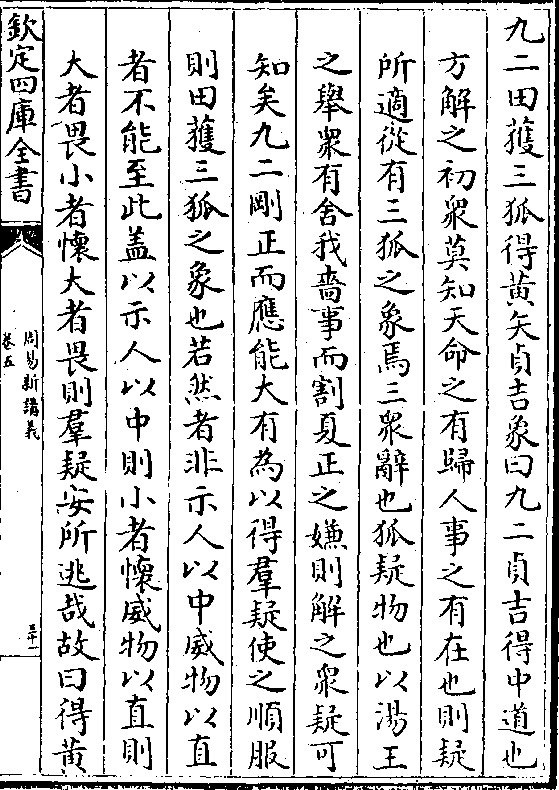 九二田獲三狐得黄矢貞吉象曰九二貞吉得中道也
方解之初衆莫知天命之有歸人事之有在也則疑
所適從有三狐之象焉三衆辭也狐疑物也以湯王
之舉衆有舍我穡事而割夏正之嫌則解之衆疑可
知矣九二剛正而應能大有為以得羣疑使之順服
則田獲三狐之象也若然者非示人以中威物以直
者不能至此盖以示人以中則小者懷威物以直則
大者畏小者懷大者畏則羣疑安所逃哉故曰得黄
欽定四庫全書
周易新講義
卷五
三十一